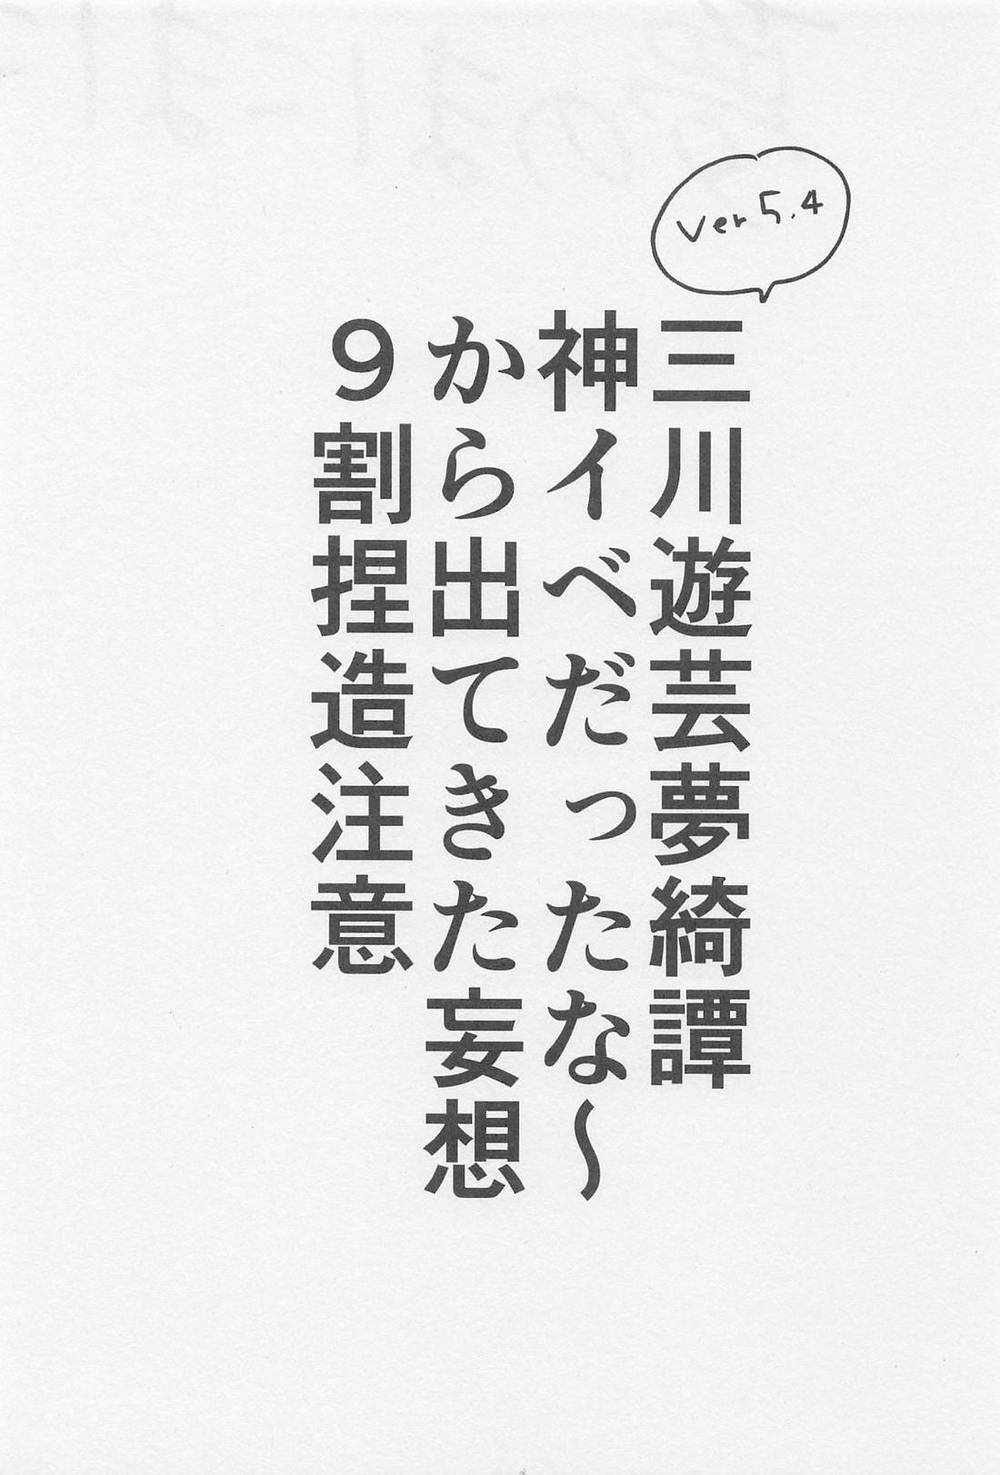 ver 5.4
三川遊芸夢綺譚
神イベだったな～
から出てきた妄想
９割捏造注意